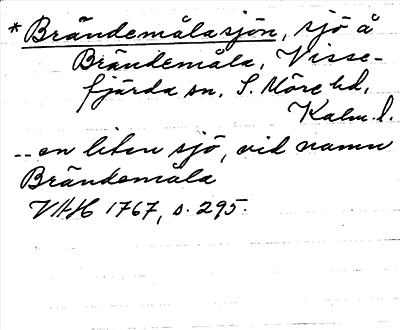 * Brändemålasjön, sjö å
Brändemåla, Visse-
fjärda sn, S. Möre hd,
Kalm. l.
-- en liten sjö, vid namn
Brändemåla
VAH 1767, s. 295.